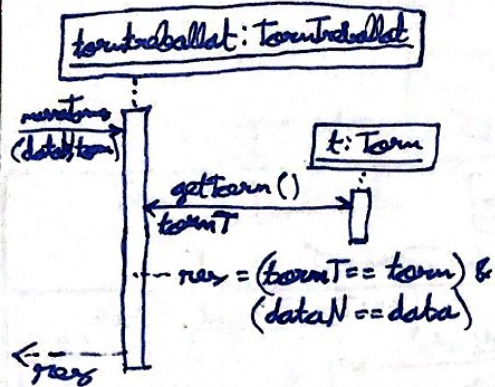 torntreballat: TornTreballat
(dataN, torn)
t: Torn
getTorn()
tornT
res = (tornT == torn) &
(dataN == data)
res